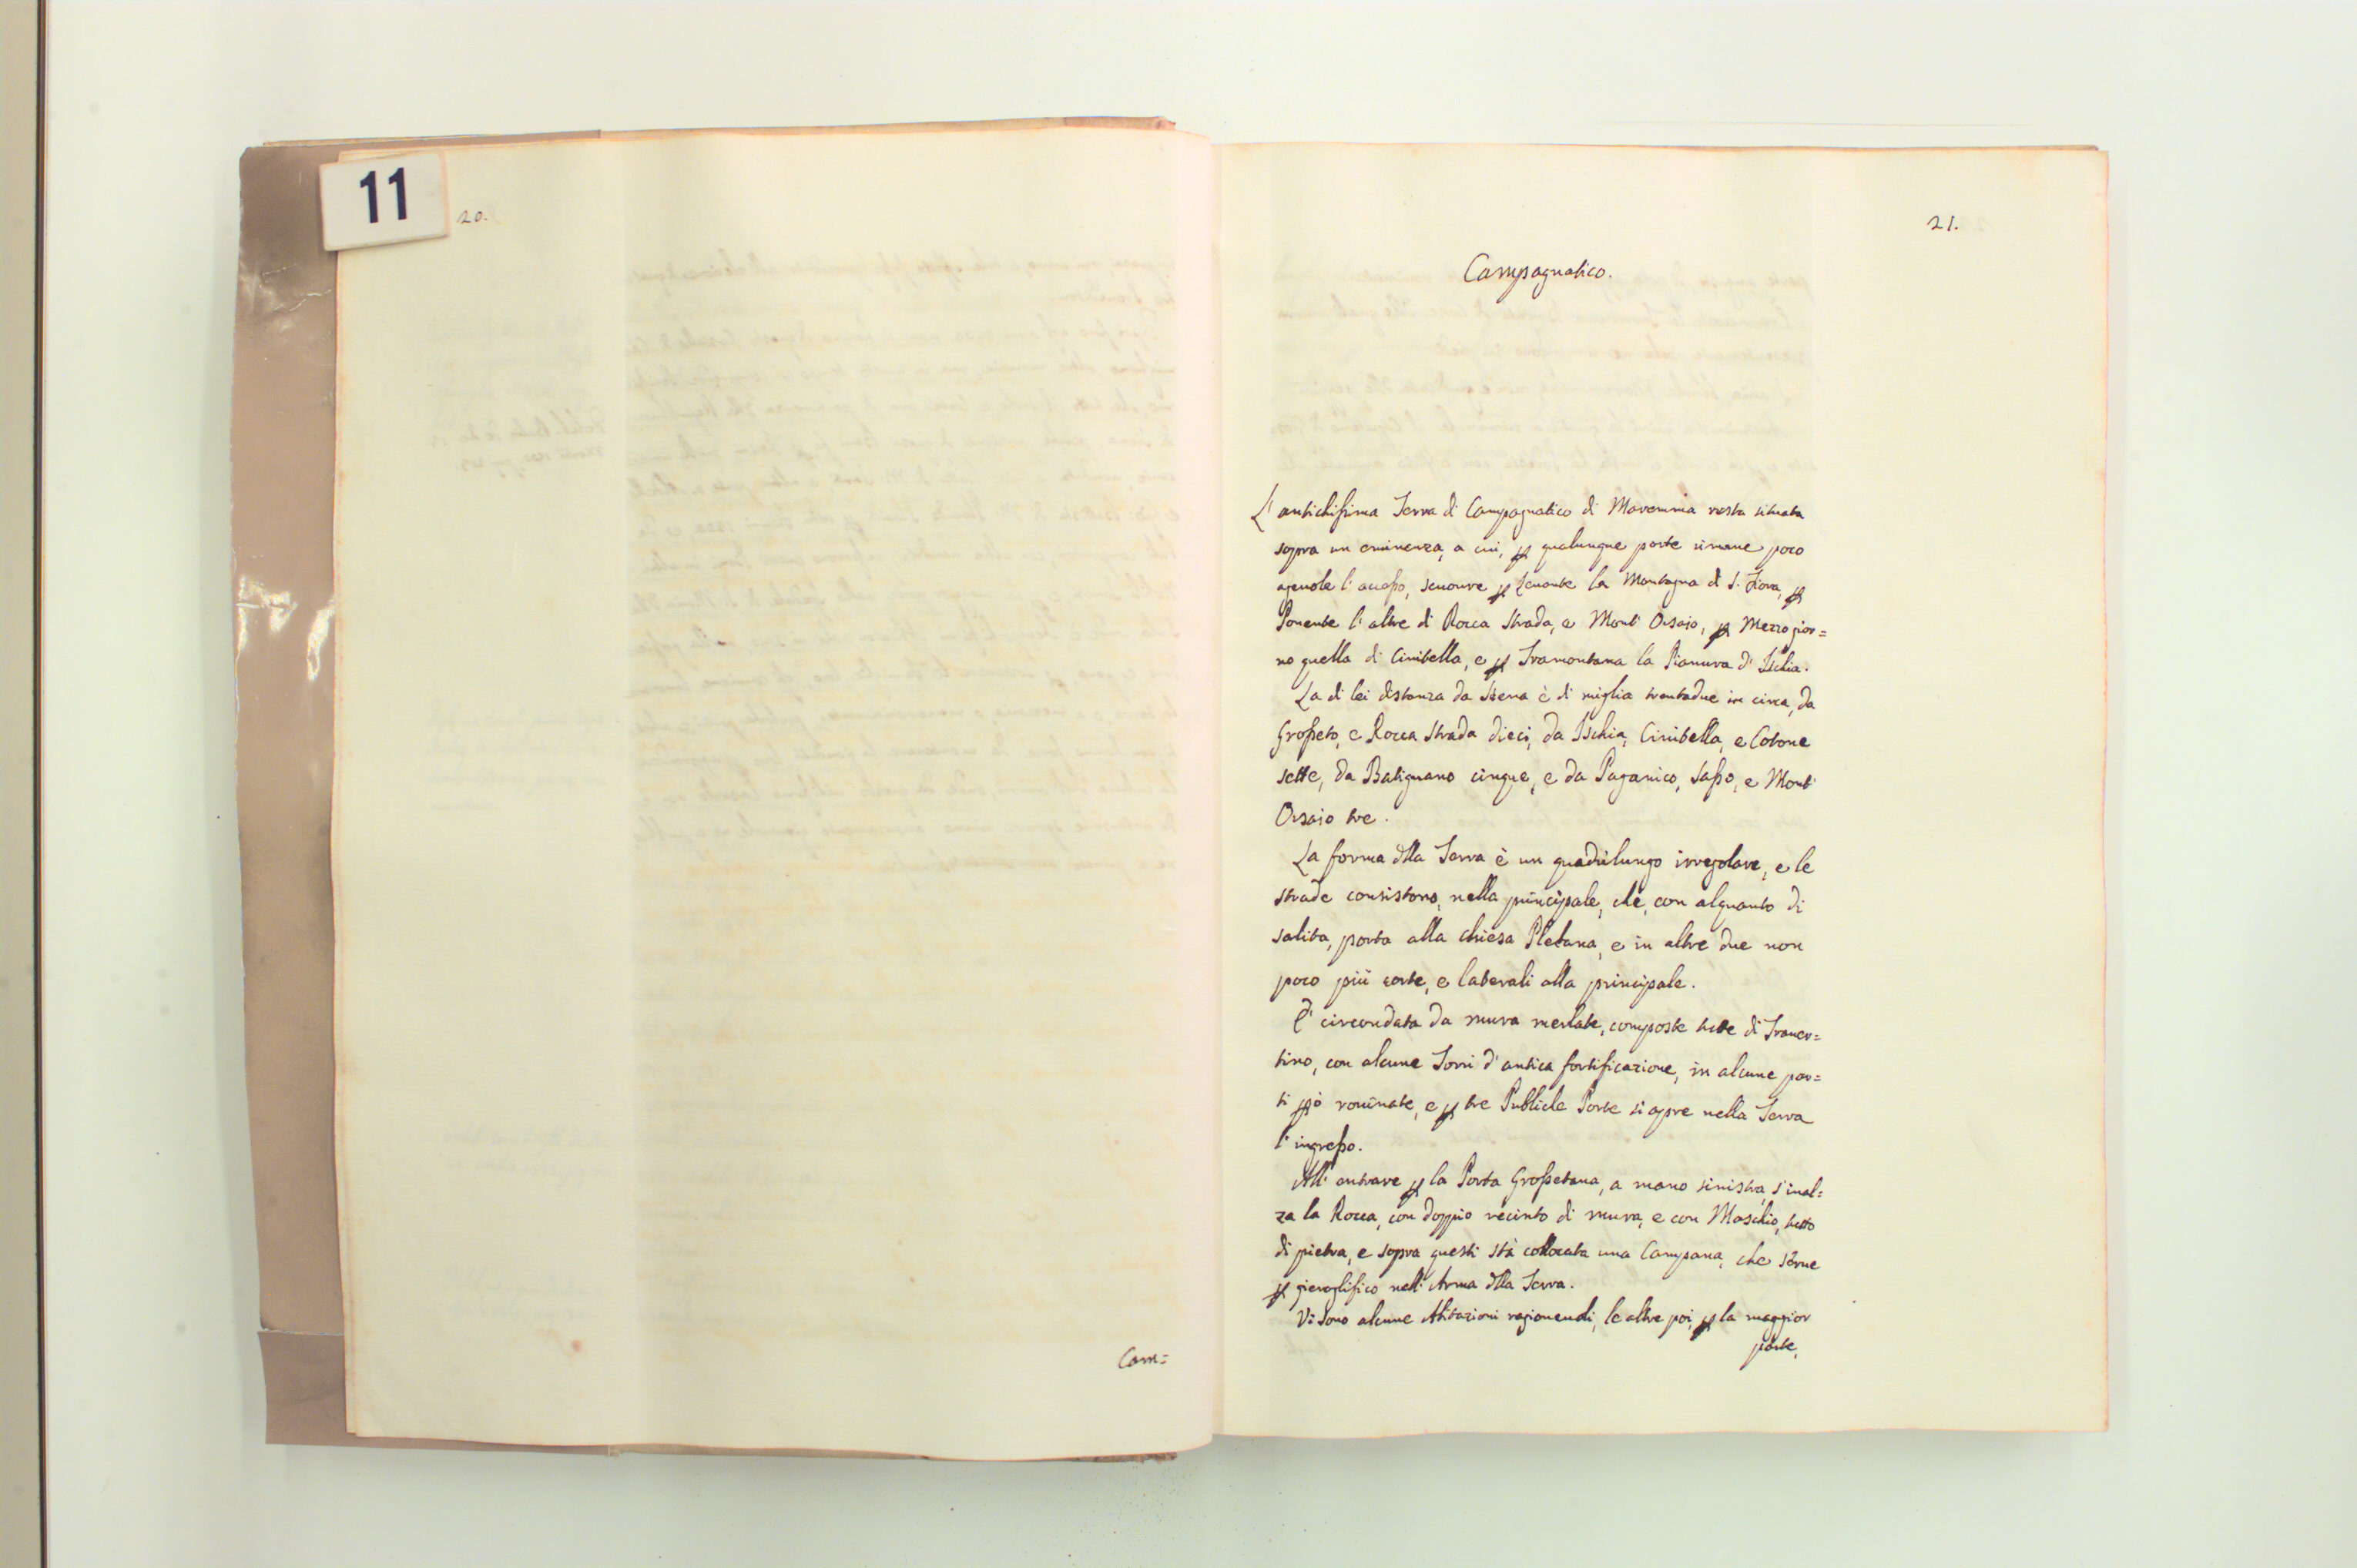 11
20.
Cam=
21.
Campagnatico.
L'antichissima Terra di Campagnatico di Maremma resta situata
sopra un eminenza, a cui, per qualunque parte rimane poco
agevole l'accesso, scuopre per Levante la Montagna di S. Fiora, per
Ponente l'altre di Rocca Strada, e Mont' Orsaio, per Mezzogior=
no quella di Cinibella, e per Tramontana la Pianura d'Ischia.
La di lei distanza da Siena è di miglia trentadue in circa, da
Grosseto, e Rocca Strada dieci, da Ischia, Cinibella, e Cotone
sette, da Batignano cinque, e da Paganico, Sasso, e Mont'
Orsaio tre.
La forma dlla Terra è un quadrilungo irregolare, e le
strade consistono, nella principale, che, con alquanto di
salita, porta alla chiesa Plebana, e in altre due non
poco più corte, e laterali alla principale.
E' circondata da mura merlate, composte tutte di Traver=
tino, con alcune Torri d'antica fortificazione, in alcune par=
ti però rovinate, e per tre Publiche Porte si apre nella Terra
l'ingresso.
All'entrare per la Porta Grossetana, a mano sinistra, s'inal=
za la Rocca, con doppio recinto di mura, e con Maschio, tutto
di pietra, e sopra questi stà collocata una Campana, che serve
per gieroglifico nell'Arma dlla Terra.
Vi sono alcune Abitazioni ragionevoli, le altre poi, per la maggior
parte,